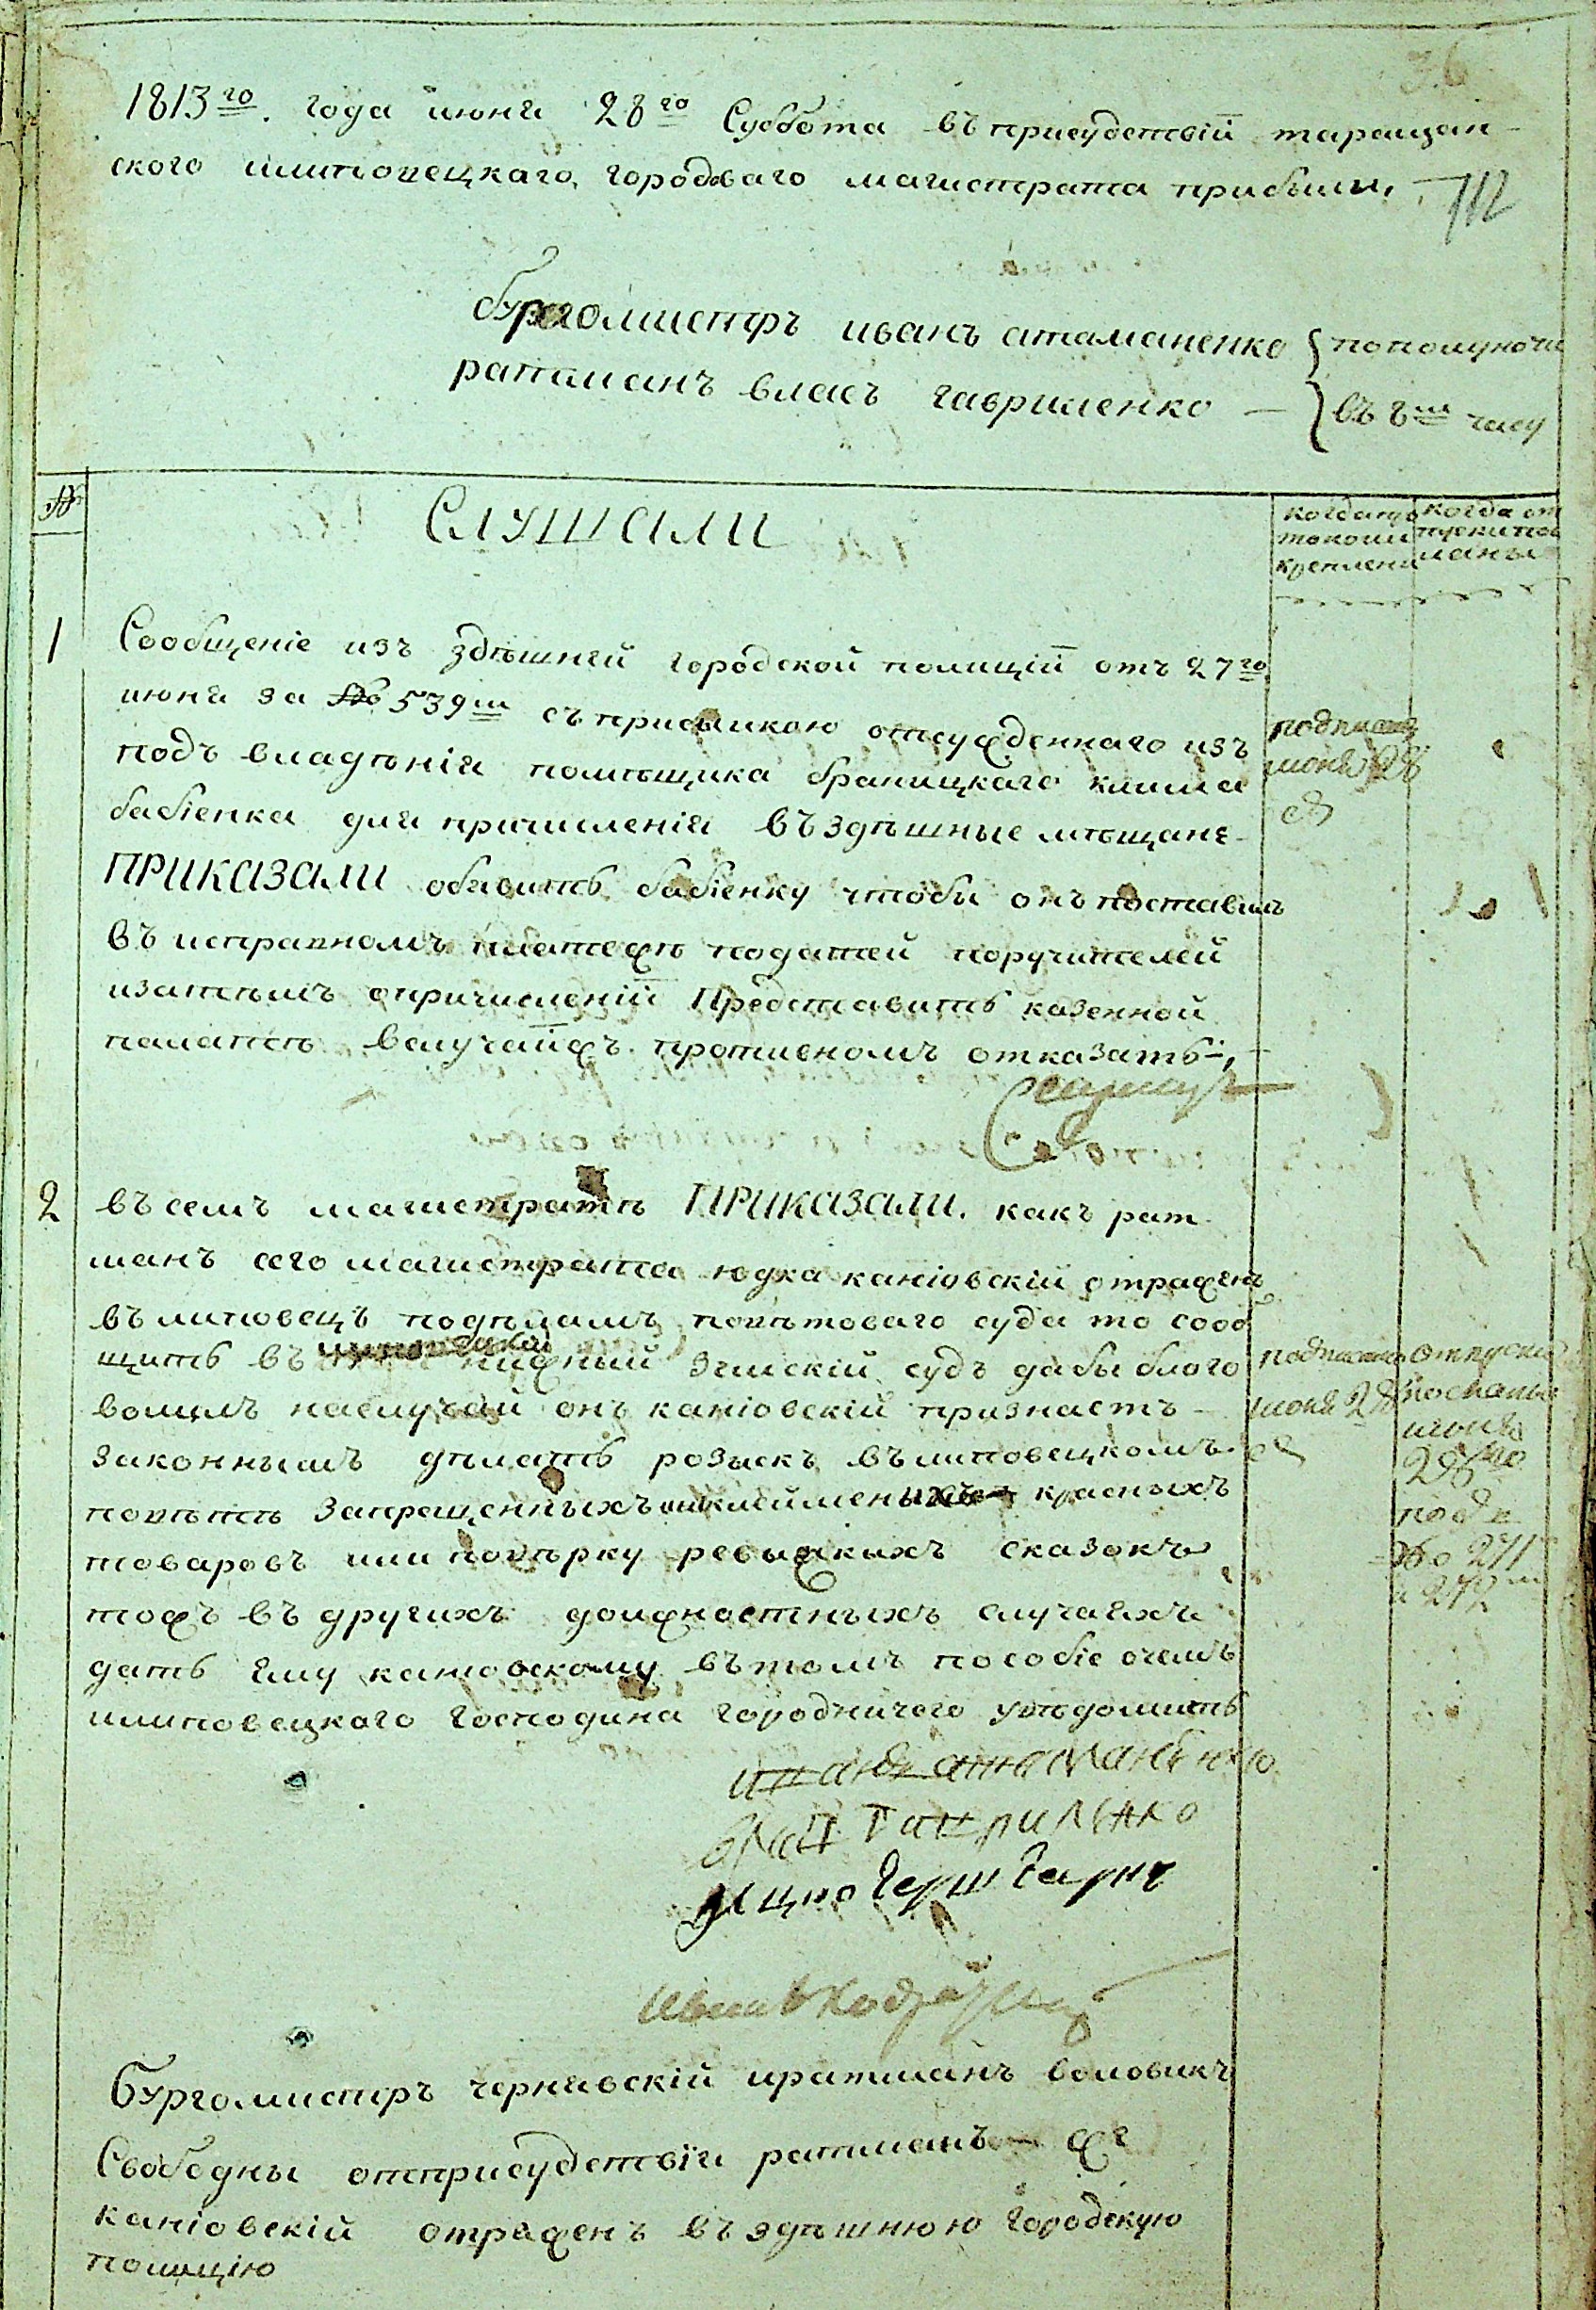 36
1813го. года июня 28го Суббота въ присудствіи таращан-
ского илиповецкаго, городоваго магистрата прибыли,
112
бургомистръ иванъ атаманенко { пополуночи
ратманъ власъ гавриленко — } въ 8м часу
№
Слушали
когда про
токолъ
крепленъ
когда от
пуски пос
ланы
1
Сообщеніе изъ здѣшней городской полиціи отъ 27го
июня за № 539м съ присылкою отсужденнаго изъ
подъ владѣнія помѣщика браницкаго клима
бабіенка для причисленія въ здѣшные мѣщане-
ПРИКАЗАЛИ обявить бабіенку чтобы онъ поставилъ
въ исправномъ платежѣ податей поручителей
изатѣмъ опричисленіи Представить казенной
палатѣ вслучаижъ противномъ отказать,
подписанъ
июня 28
2
въ семъ магистратѣ ПРИКАЗАЛИ. какъ рат
манъ сего магистрата юдка каніовскій отраженъ
въ липовецъ подѣламъ повѣтоваго суда то сооб
щить въ липовецкій нижный земскій судъ дабы благо
волилъ наслучай онъ каніовскій признаетъ
законнымъ дѣлать розыскъ въ липовецкомъ
повѣтѣ Запрещенныхъ инклейменыхъ красныхъ
товаровъ или повѣрку ревыжкихъ сказокъ
тожъ въ другихъ должностныхъ случаяхъ
дать Ему каніовскому въ томъ пособіе очемъ
илиповецкаго Господина городничого увѣдомить
подписанъ
июня 28
Отпуски
посланы
июня
28го
подъ
№о 271
и 272м
иванъ атаманенко
влас Гавриленко
Бургомистръ чернявскій иратманъ воловикъ
Свободны отъ присудствія ратманъ — же
каніовскій отраженъ въ здѣшнюю городскую
полицію